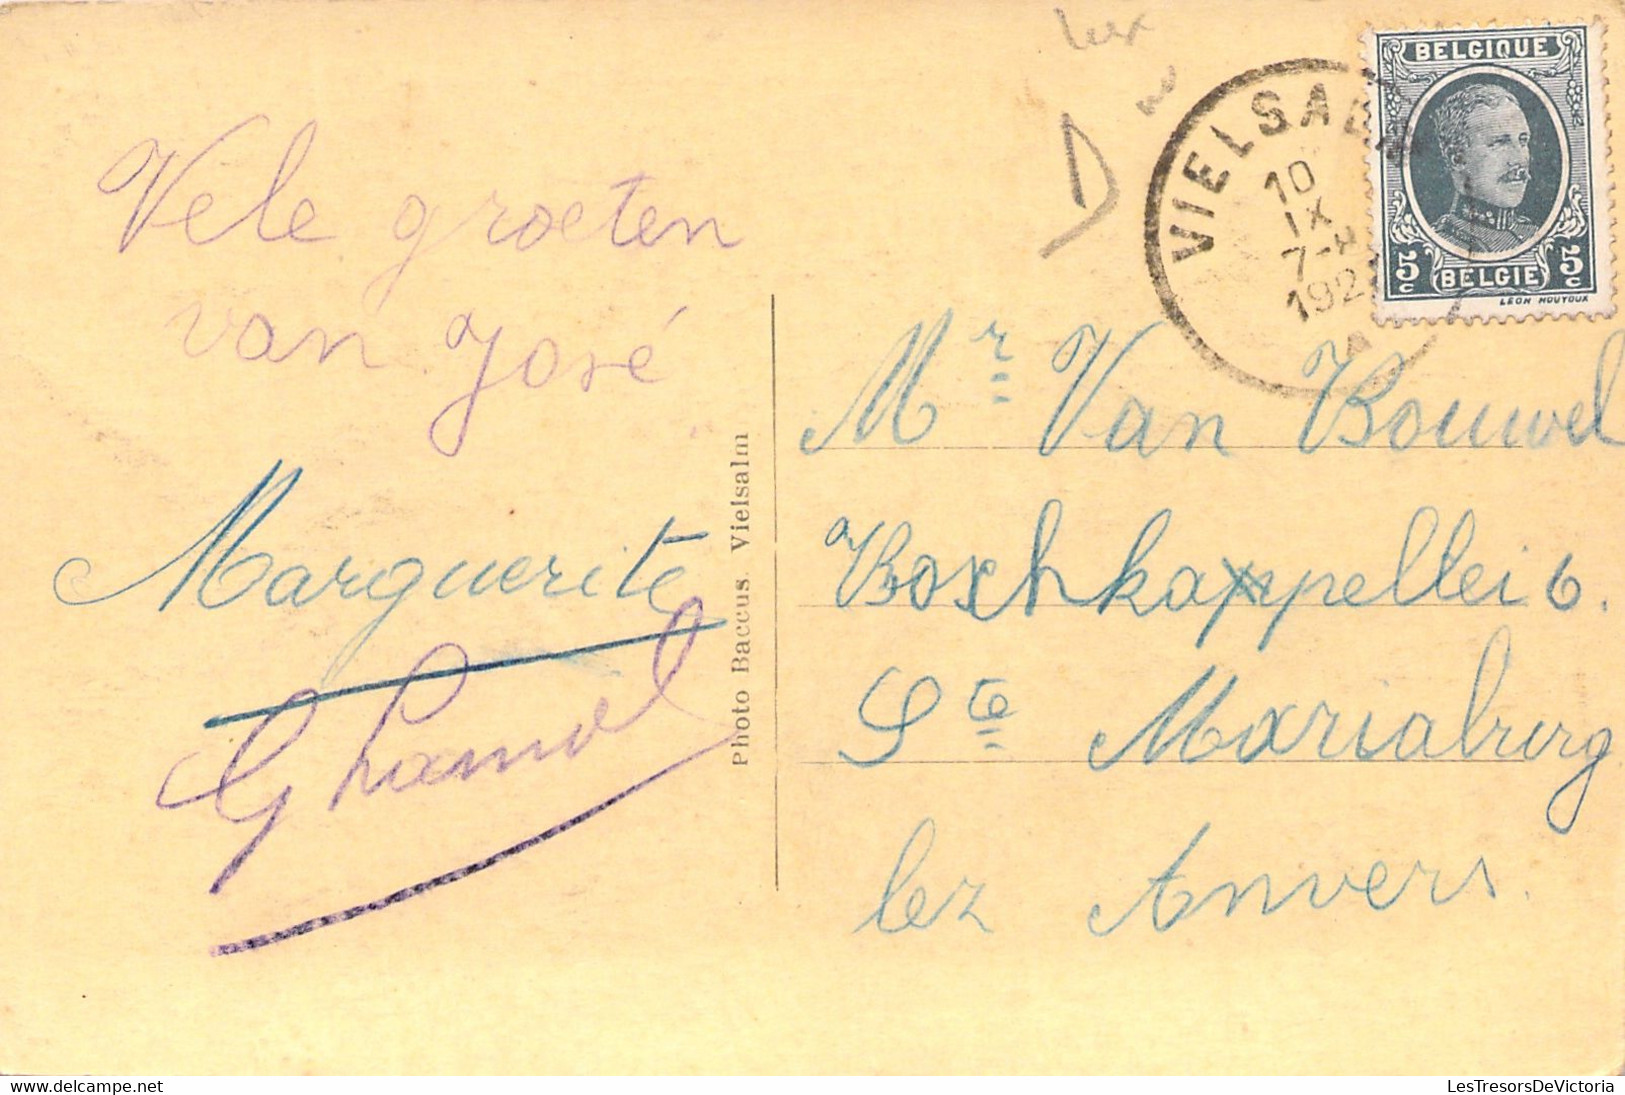 Vele groeten
van José
Marguerite
Photo Baccus. Vielsalm
lux
D
VIELSAL
10
IX
7-8
192
BELGIQUE
5c 5c
BELGIE
LÉON HOUYOUX
Mr Van Bouwel
Boschkappellei 6.
Ste Mariaburg
lez Anvers.
delcampe.net
LesTresorsDeVictoria